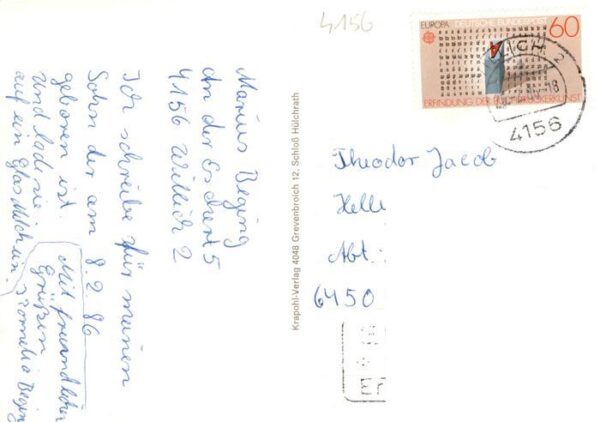 4156
Marius Beging
An der Eschert 5
4156 Willich 2
Ich schreibe für meinen
Sohn der am 8.2.86
geboren ist.
und lade sie
auf ein Glas Milch ein.
Mit freundlichen
Grüßen
Kornelia Beging
Krapohl-Verlag 4048 Grevenbroich 12, Schloß Hülchrath
EUROPA DEUTSCHE BUNDESPOST 60
ERFINDUNG DER BUCHDRUCKERKUNST
LICH 2
-18
4156
Theodor Jacob
Helle
Abt.
6450